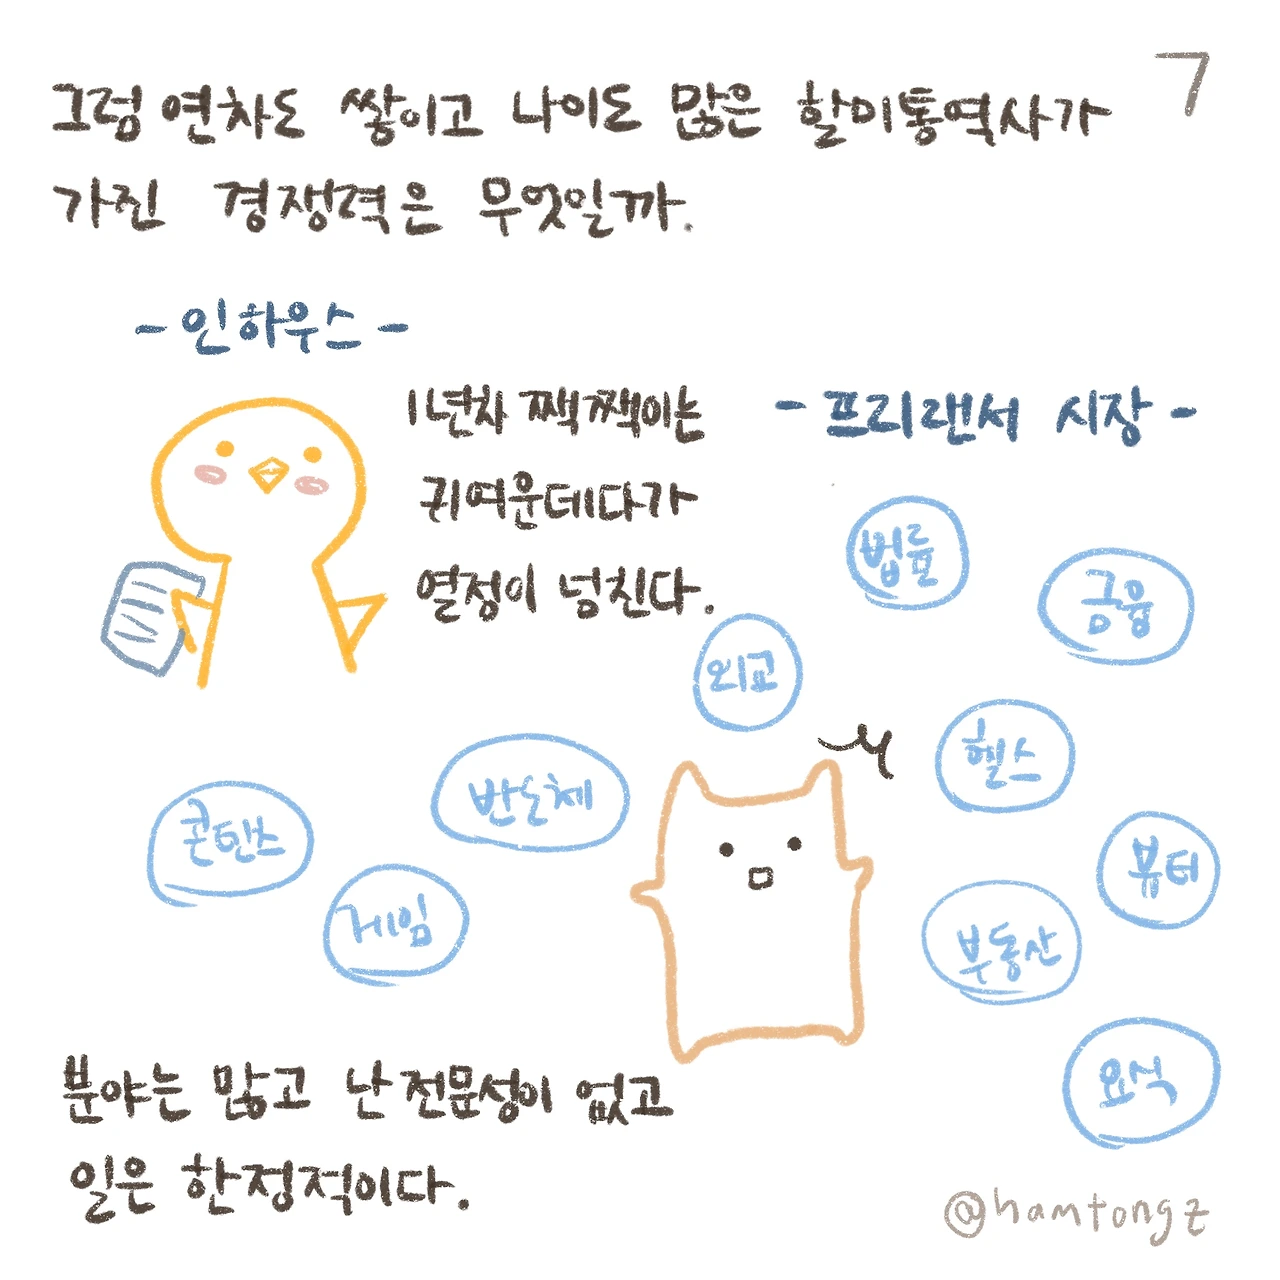 7
그럼 연차도 쌓이고 나이도 많은 할미통역사가
가진 경쟁력은 무엇일까.
- 인하우스 -
1년차 짹짹이는
귀여운데다가
열정이 넘친다.
- 프리랜서 시장 -
법률
금융
외교
헬스
반도체
콘텐츠
뷰티
게임
부동산
요식
분야는 많고 난 전문성이 없고
일은 한정적이다.
@hamtongz